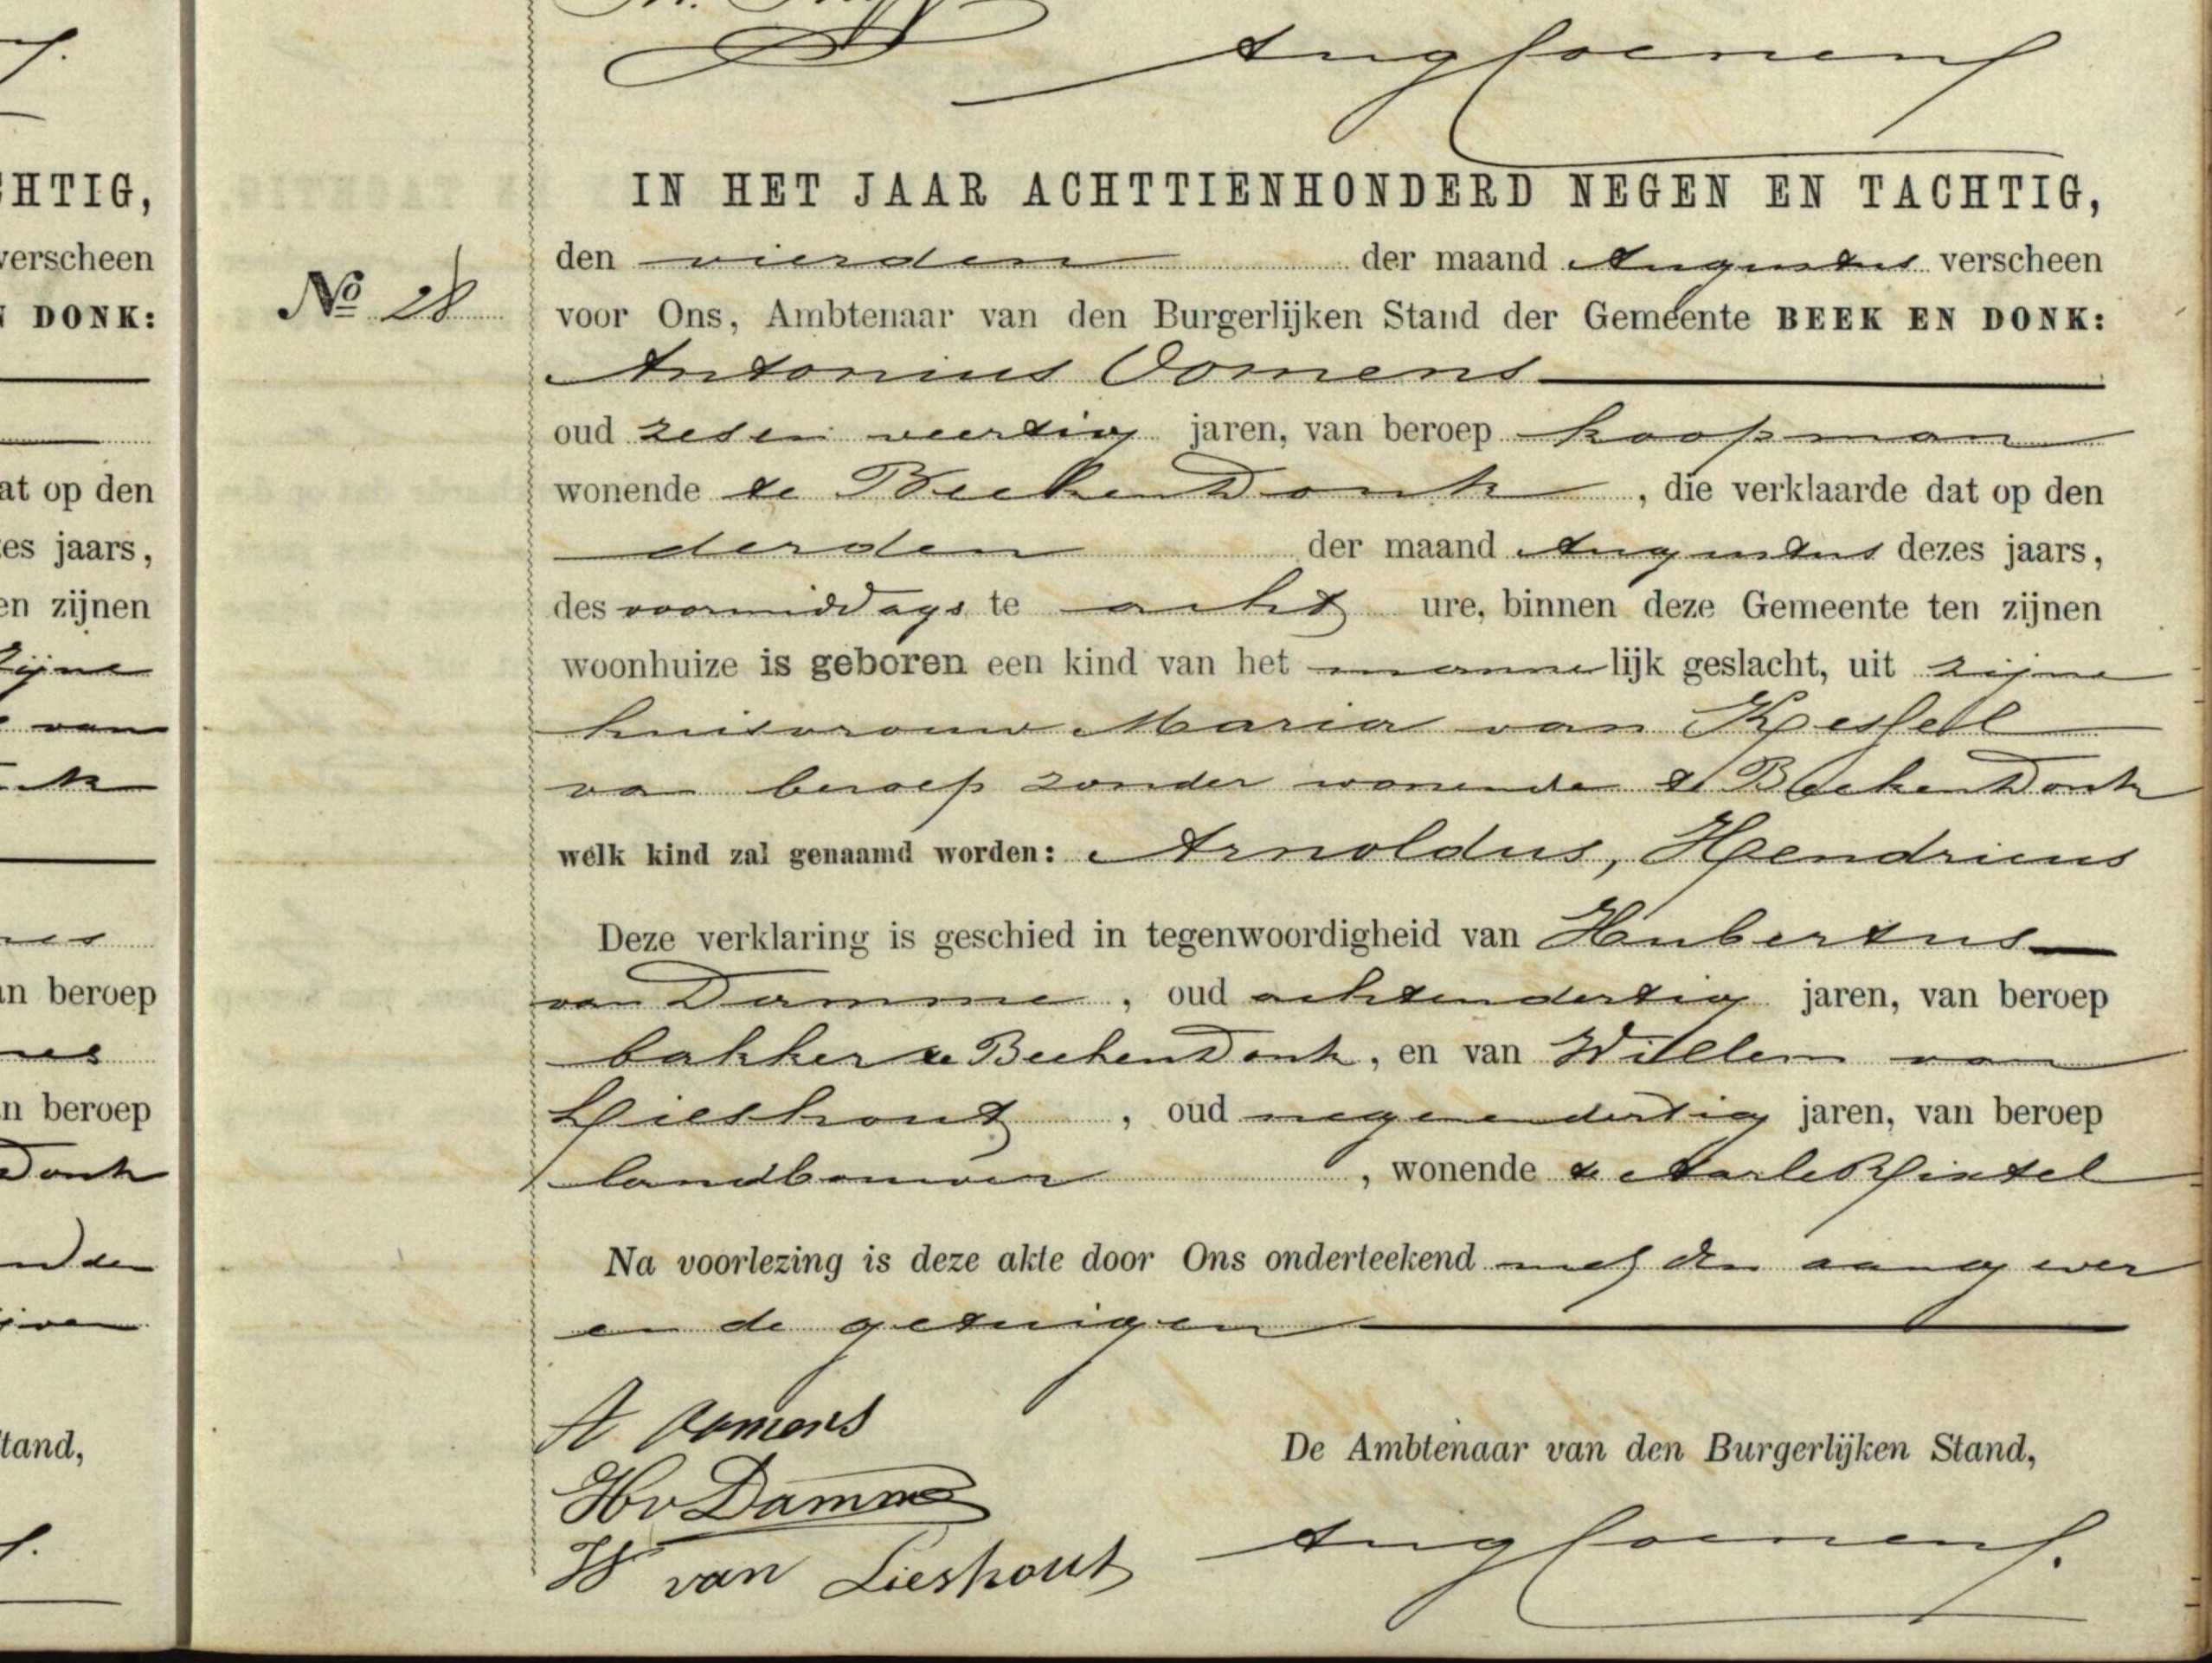 HTIG,
verscheen
DONK:
at op den
es jaars,
en zijnen
zijne
van
in beroep
n beroep
Donk
tand,
IN HET JAAR ACHTTIENHONDERD NEGEN EN TACHTIG,
den vierden der maand Augustus verscheen
No 28 voor Ons, Ambtenaar van den Burgerlijken Stand der Gemeente BEEK EN DONK:
Antonius Oomens
oud zes en veertig jaren, van beroep koopman
wonende te Beek en Donk, die verklaarde dat op den
derden der maand Augustus dezes jaars,
des voormiddags te acht ure, binnen deze Gemeente ten zijnen
woonhuize is geboren een kind van het mannelijk geslacht, uit zijne
huisvrouw Maria van
van beroep zonder wonende te Beek en Donk
welk kind zal genaamd worden: Arnoldus, Hendricus
Deze verklaring is geschied in tegenwoordigheid van Hubertus
van Damme, oud achtendertig jaren, van beroep
bakker te Beek en Donk, en van Willem van
Lieshout, oud negenendertig jaren, van beroep
landbouwer, wonende te Aarle Rixtel
Na voorlezing is deze akte door Ons onderteekend met den aangever
en de getuigen
A Oomens
Hv Damme
W van Lieshout
De Ambtenaar van den Burgerlijken Stand,